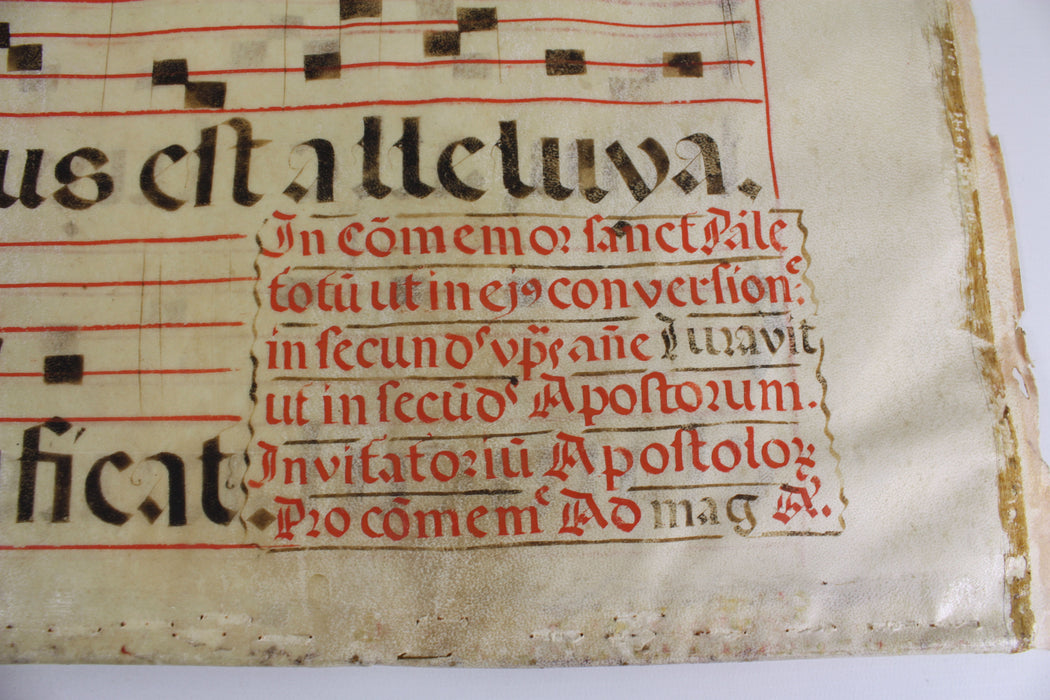 us est alleluya.
In cõmemor sanct Pãle
totũ ut in ejꝰ conversionᵉ:
in secundˢ vp̃s añe Juravit
ficat.
ut in secũdˢ Apostorum.
Invitatoriũ Apostolor
Pro cõmemᵉ Ad mag A.